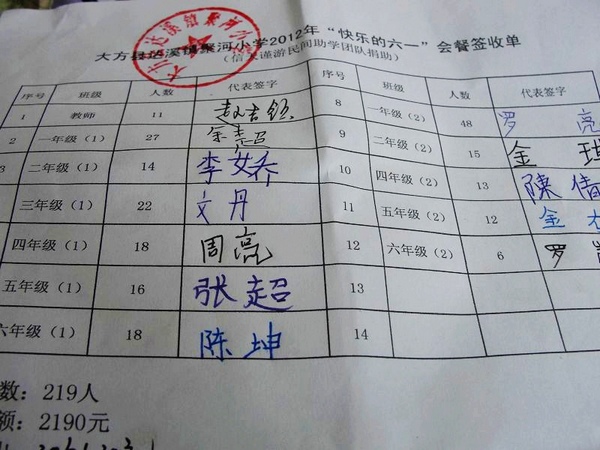 大方县达溪镇聚河小学2012年“快乐的六一”会餐签收单
(信义谨游民间助学团队捐助)
序号 班级 人数 代表签字 8 一年级(2) 48 罗亮
1 教师 11 9 二年级(2) 15 金
2 一年级(1) 27 朱超 10 四年级(2) 13 陳倩
3 二年级(1) 14 李女乔 11 五年级(2) 12 金
三年级(1) 22 文丹 12 六年级(2) 6 罗
四年级(1) 18 周亮 13
五年级(1) 16 张超 14
六年级(1) 18 陈坤
数:219人
额:2190元